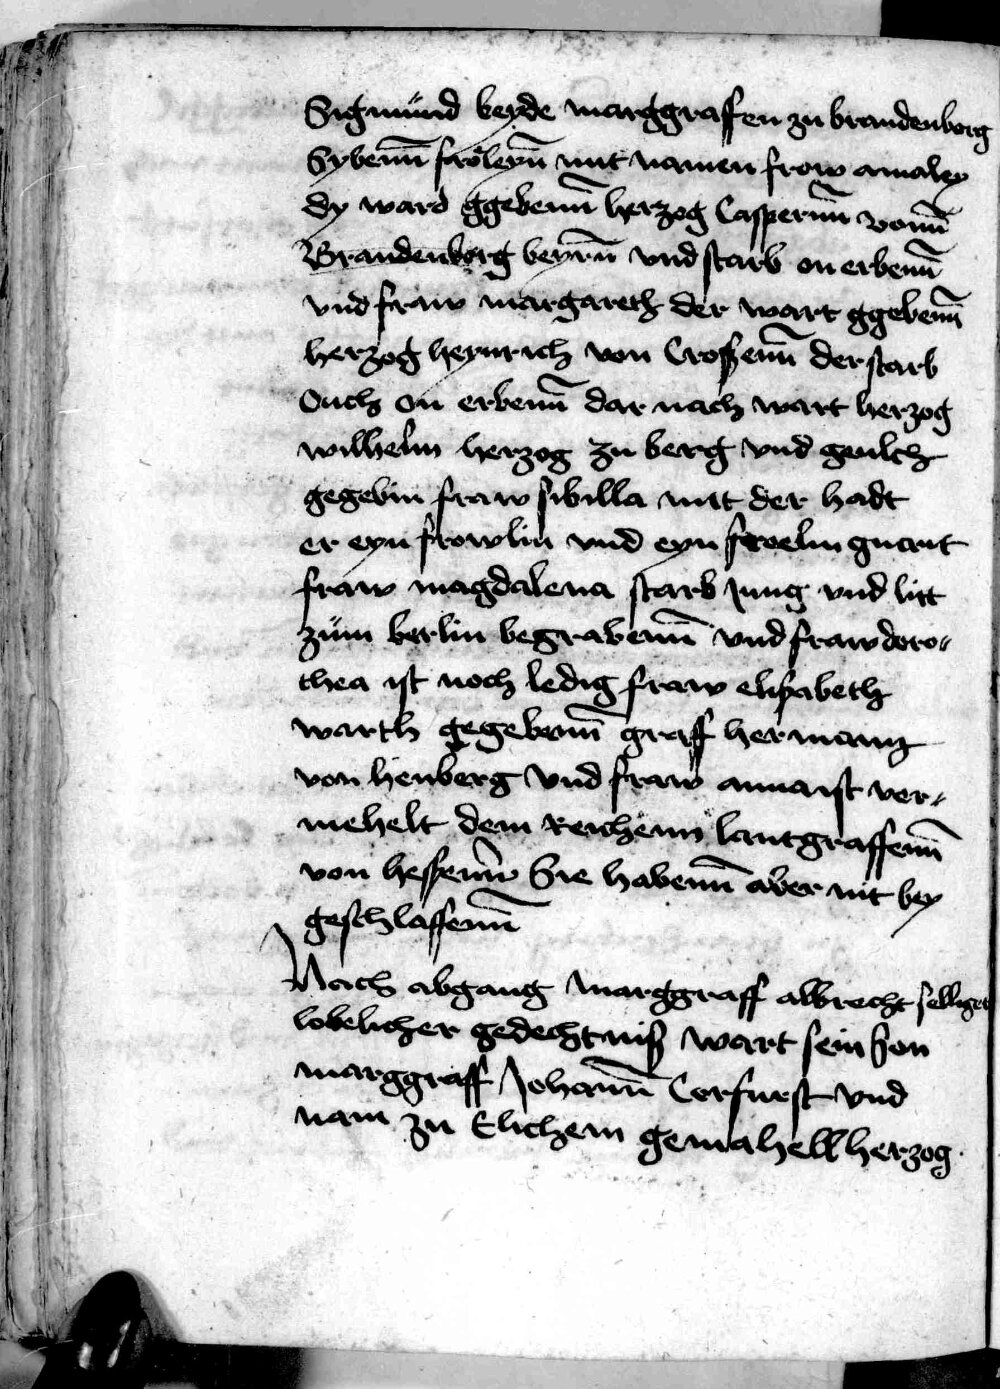 Sigmund beyde marggraffen zu brandenborg
Sybenn fröleyn mit namen frow amaley
dy ward ggebenn herzog Caspernn vonn
Brandenborg beyrn vnd starb on erbenn
vnd fraw margareth der wart ggebenn
herzog heynrich von Crossenn der starb
Ouch on erbenn dar nach wart herzog
wilhelm herzog zu berg vnd geulch
gegebin fraw sibilla mit der hadt
er eyn frowlin vnd eyn froelin gnant
fraw magdalena starb Jung vnd litt
züm berlin begrabenn vnd fraw doro-
thea ist noch ledig fraw elisabeth
warth gegebenn graff hermann
von henberg vnd fraw anna ist ver-
mehelt dem Reichenn lantgraffenn
von hessenn Sie habenn aber nit bey
geschlaffenn
Nach abgang Marggraff albrecht selliger
lobelicher gedechtniß wart sein Son
marggraff Johann Corfurst vnd
nam zu Elichem gemahell herzog